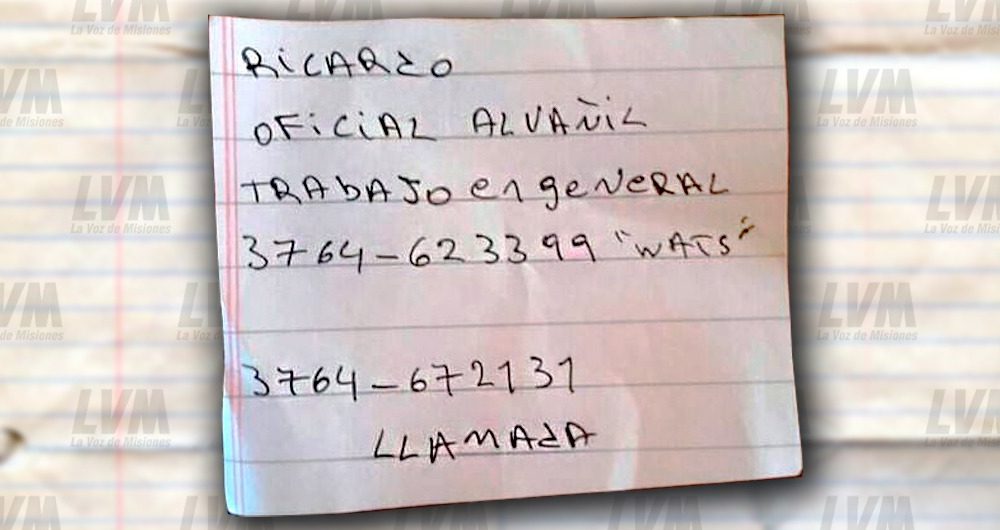 RiCARdO
OFiCiAL ALVAÑiL
TRAbAJO en geNeRAL
3764-623399 "WATS"
3764-672131
LLAMAdA
LVM
La Voz de Misiones